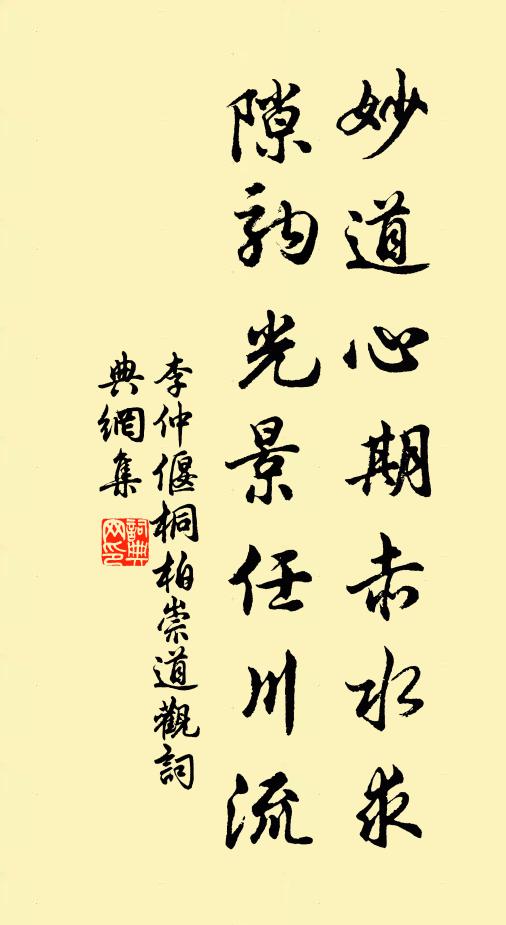 妙道心期赤水求
隙駒光景任川流
李仲偃桐柏崇道觀詞
典網集
詞典网印